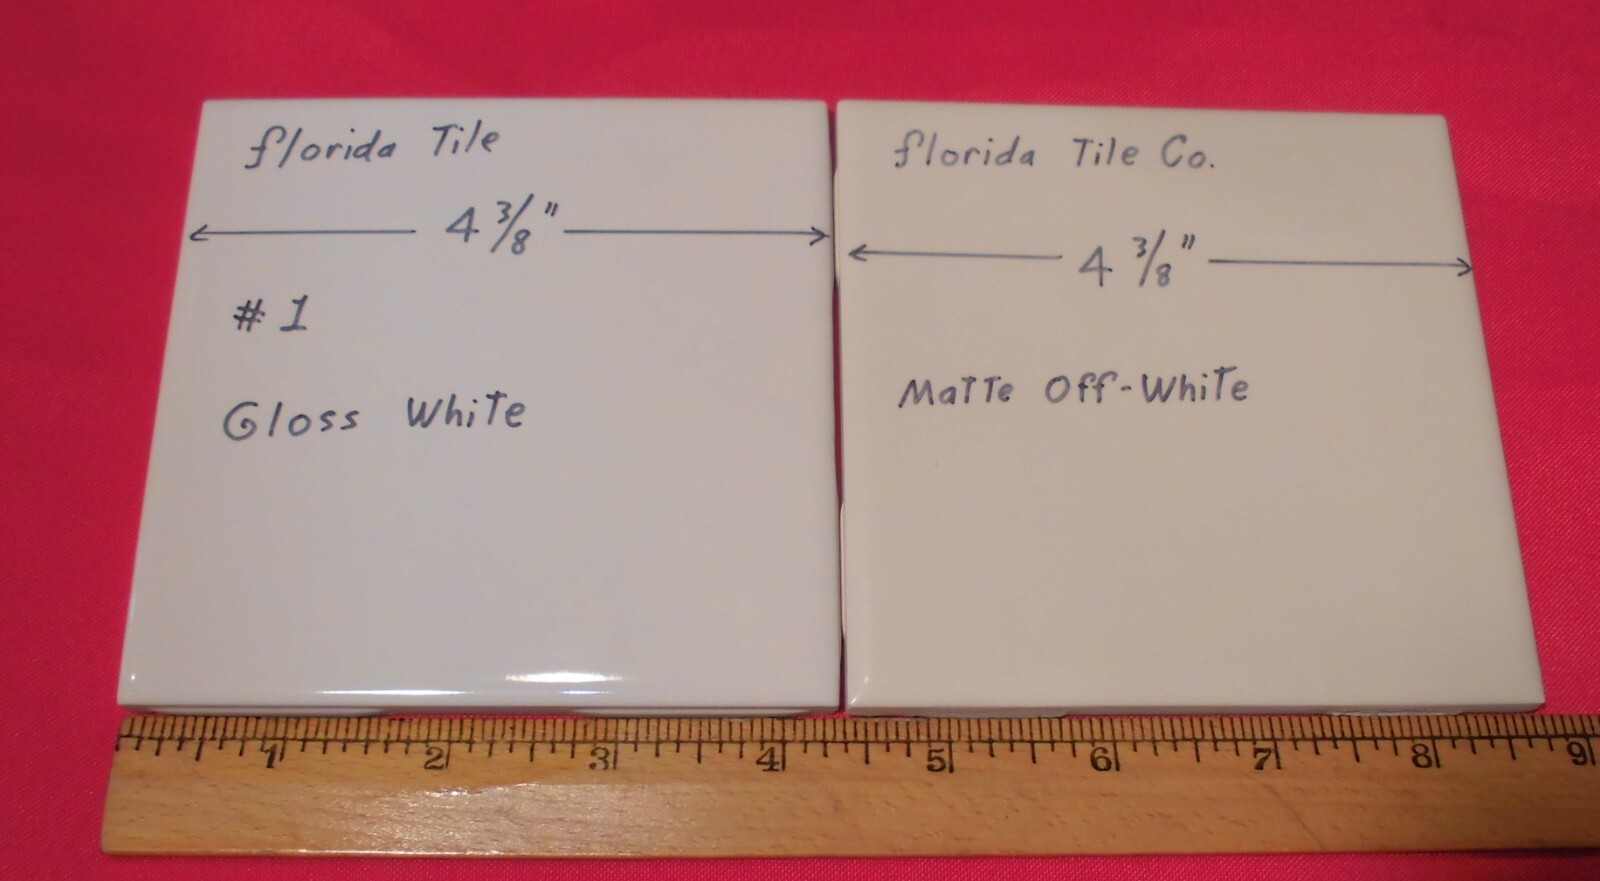 Florida Tile
4 3/8"
#1
Gloss White
Florida Tile Co.
4 3/8"
Matte Off-White
1 2 3 4 5 6 7 8 9